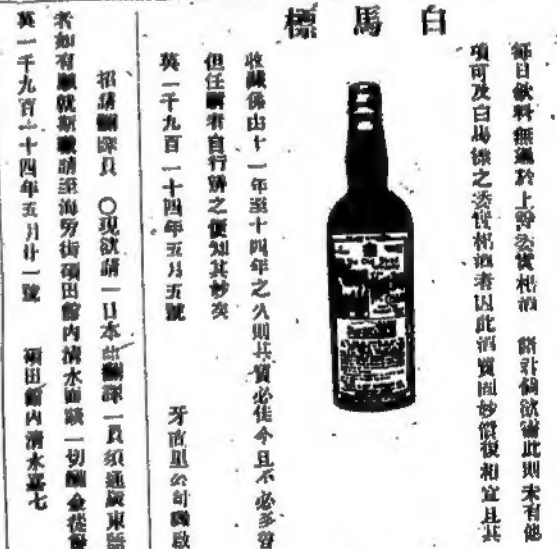 白馬標
每日飲料無過於上等委實杞酒 餘非個欲需此則未有他
項可及白馬標之委實杞酒者因此酒質固妙價復相宜且其
收藏係由十一年至十四年之久則其質必佳今且不必多贅
但任購者自行購之便知其妙矣
英一千九百一十四年五月五號 牙直里公司謹啟
招請翻譯員 〇現欲請一日本翻譯一員須通廣東話
者如有願就斯職請至海旁街碩田館內清水面議一切酬金從優
英一千九百一十四年五月廿一號 碩田館內清水嘉七